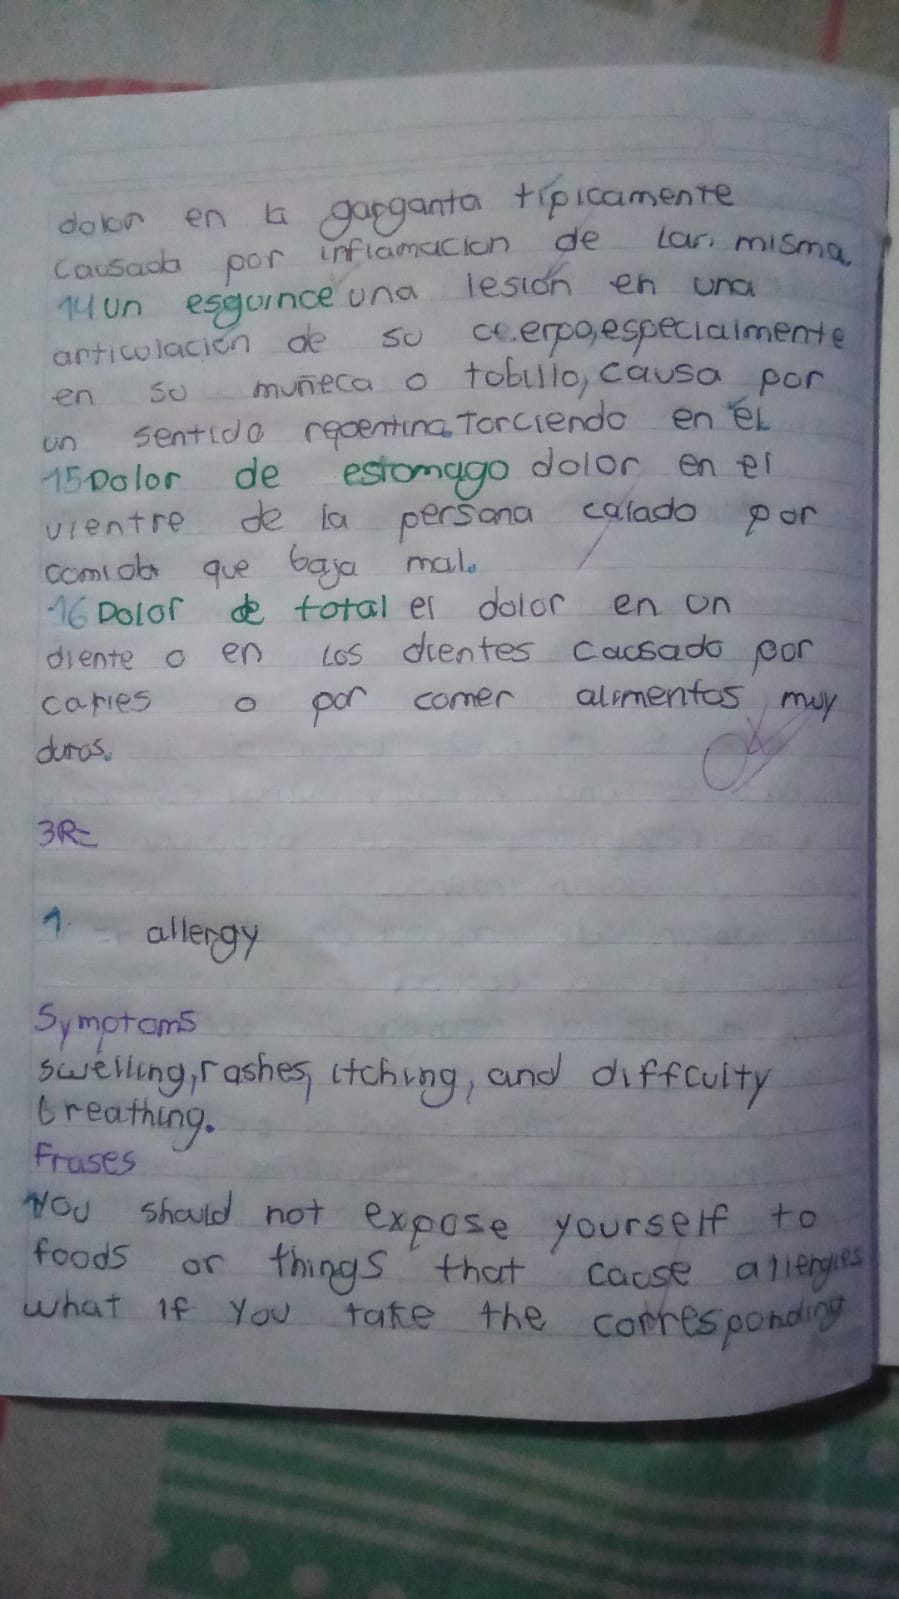 dolor en la garganta típicamente
causada por inflamacion de la misma.
14 un esguince una lesión en una
articulación de su cuerpo, especialmente
en su muñeca o tobillo, causa por
un sentido repentina. Torciendo en él
15 Dolor de estomago dolor en el
vientre de la persona calado por
comida que baja mal.
16 Dolor de total el dolor en un
diente o en los dientes causado por
caries o por comer alimentos muy
duros.
3R=
1. allergy
Symptoms
swelling, rashes, itching, and diffculty
breathing.
Frases
You should not expose yourself to
foods or things that cause allergies
what if you take the corresponding